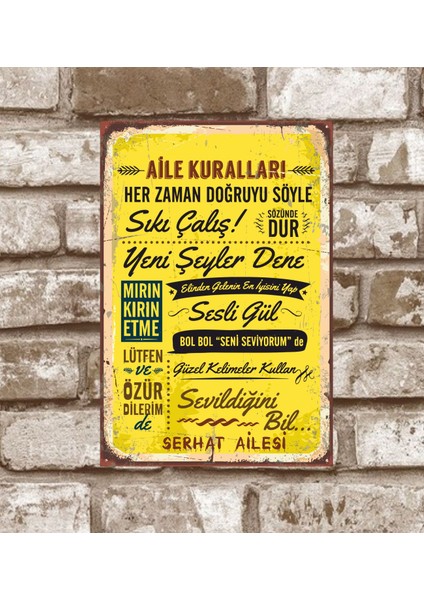 AİLE KURALLARI
HER ZAMAN DOĞRUYU SÖYLE
Sıkı Çalış!
SÖZÜNDE
DUR
Yeni Şeyler Dene
MIRIN
KIRIN
ETME
Elinden Gelenin En İyisini Yap
Sesli Gül
BOL BOL "SENİ SEVİYORUM" de
LÜTFEN
VE
ÖZÜR
DİLERİM
de
Güzel Kelimeler Kullan
Sevildiğini
Bil...
SERHAT AİLESİ